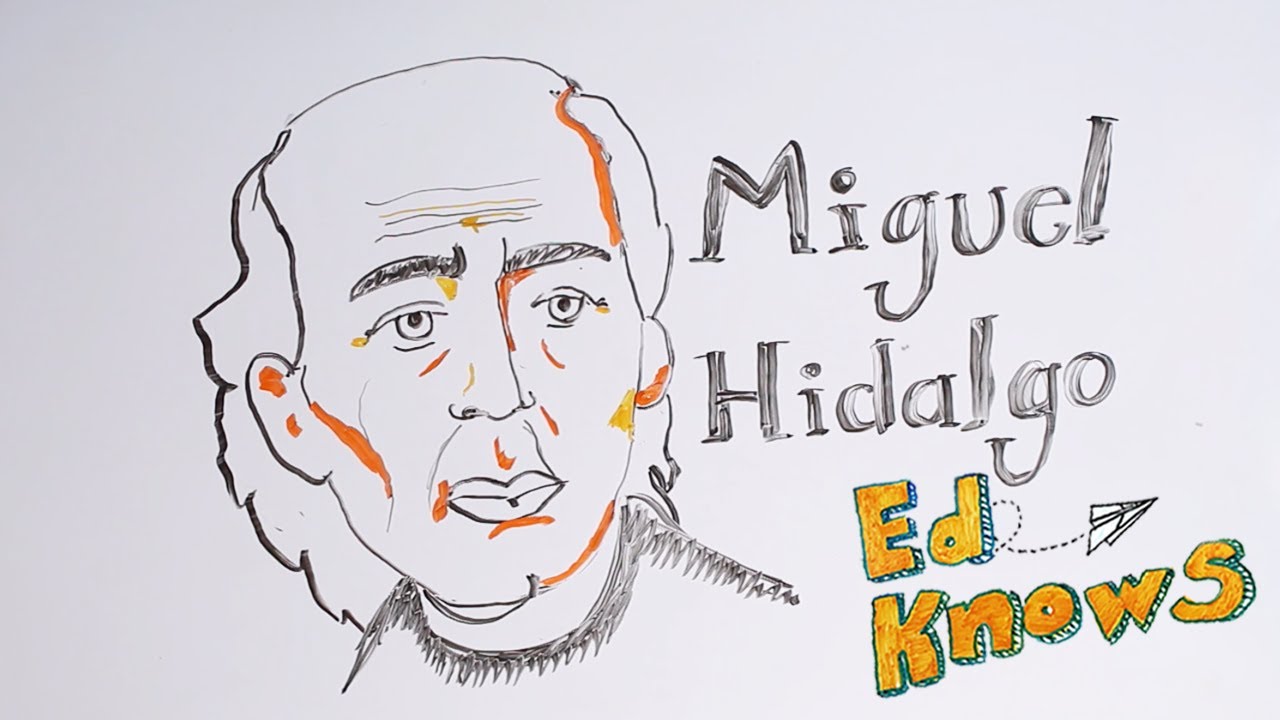 Miguel
Hidalgo
Ed
Knows